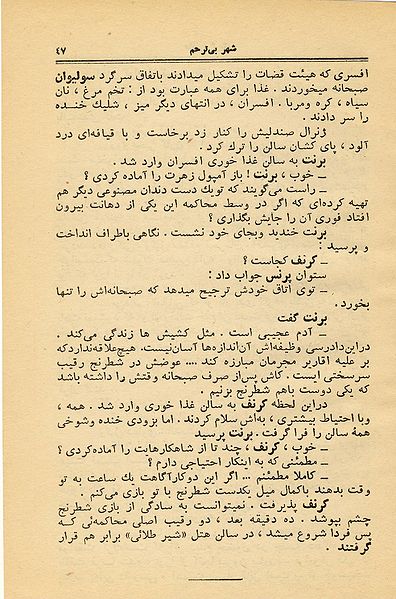 شهر بی‌ترحم ۴۷
افسری که هیئت قضات را تشکیل میدادند باتفاق سرگرد سولیوان
صبحانه میخوردند . غذا برای همه عبارت بود از : تخم مرغ ، نان
سیاه ، کره ومربا . افسران ، در انتهای دیگر میز ، شلیك خنده
را سر دادند .
ژنرال صندلیش را کنار زد برخاست و با قیافه‌ای درد
آلود ، پای کشان سالن را ترك کرد .
برنت به سالن غذا خوری افسران وارد شد .
ــ خوب ، برنت ! باز آمپول زهرت را آماده کردی ؟
ــ راست می‌گویند که تویك دست دندان مصنوعی دیگر هم
تهیه کرده‌ای که اگر در وسط محاکمه این یکی از دهانت بیرون
افتاد فوری آن را جایش بگذاری ؟
برنت خندید وبجای خود نشست . نگاهی باطراف انداخت
و پرسید :
ــ گرنف کجاست ؟
ستوان پرنس جواب داد :
ــ توی اتاق خودش ترجیح میدهد که صبحانه‌اش را تنها
بخورد .
برنت گفت
ــ آدم عجیبی است . مثل کشیش ها زندگی می‌کند .
دراین‌دادرسی وظیفه‌اش آن‌اندازه‌ها آسان‌نیست. هیچ‌علاقه‌نداردکه
بر علیه اقاریر مجرمان مبارزه کند .... عوضش در شطرنج رقیب
سرسختی ایست . کاش پس‌از صرف صبحانه وقتش را داشته باشد
که یکی دوست باهم شطرنج بزنیم .
دراین لحظه گرنف به سالن غذا خوری وارد شد . همه ،
وبا احتیاط بیشتری ، به‌اش سلام کردند . اما بزودی خنده وشوخی
همهٔ سالن را فرا گرفت . برنت پرسید
ــ خوب ، گرنف ، چند تا از شاهکارهایت را آماده‌کردی ؟
ــ مطمئنی که به اینکار احتیاجی دارم ؟
ــ کاملا مطمئنم ... اگر این دوکارآگاهت یك ساعت به تو
وقت بدهند باکمال میل یکدست شطرنج با تو بازی می‌کنم .
گرنف پذیرفت . نمیتوانست به سادگی از بازی شطرنج
چشم بپوشد . ده دقیقه بعد ، دو رقیب اصلی محاکمه‌ئی که
پس فردا شروع میشد ، در سالن هتل «شیر طلائی» برابر هم قرار
گرفتند .